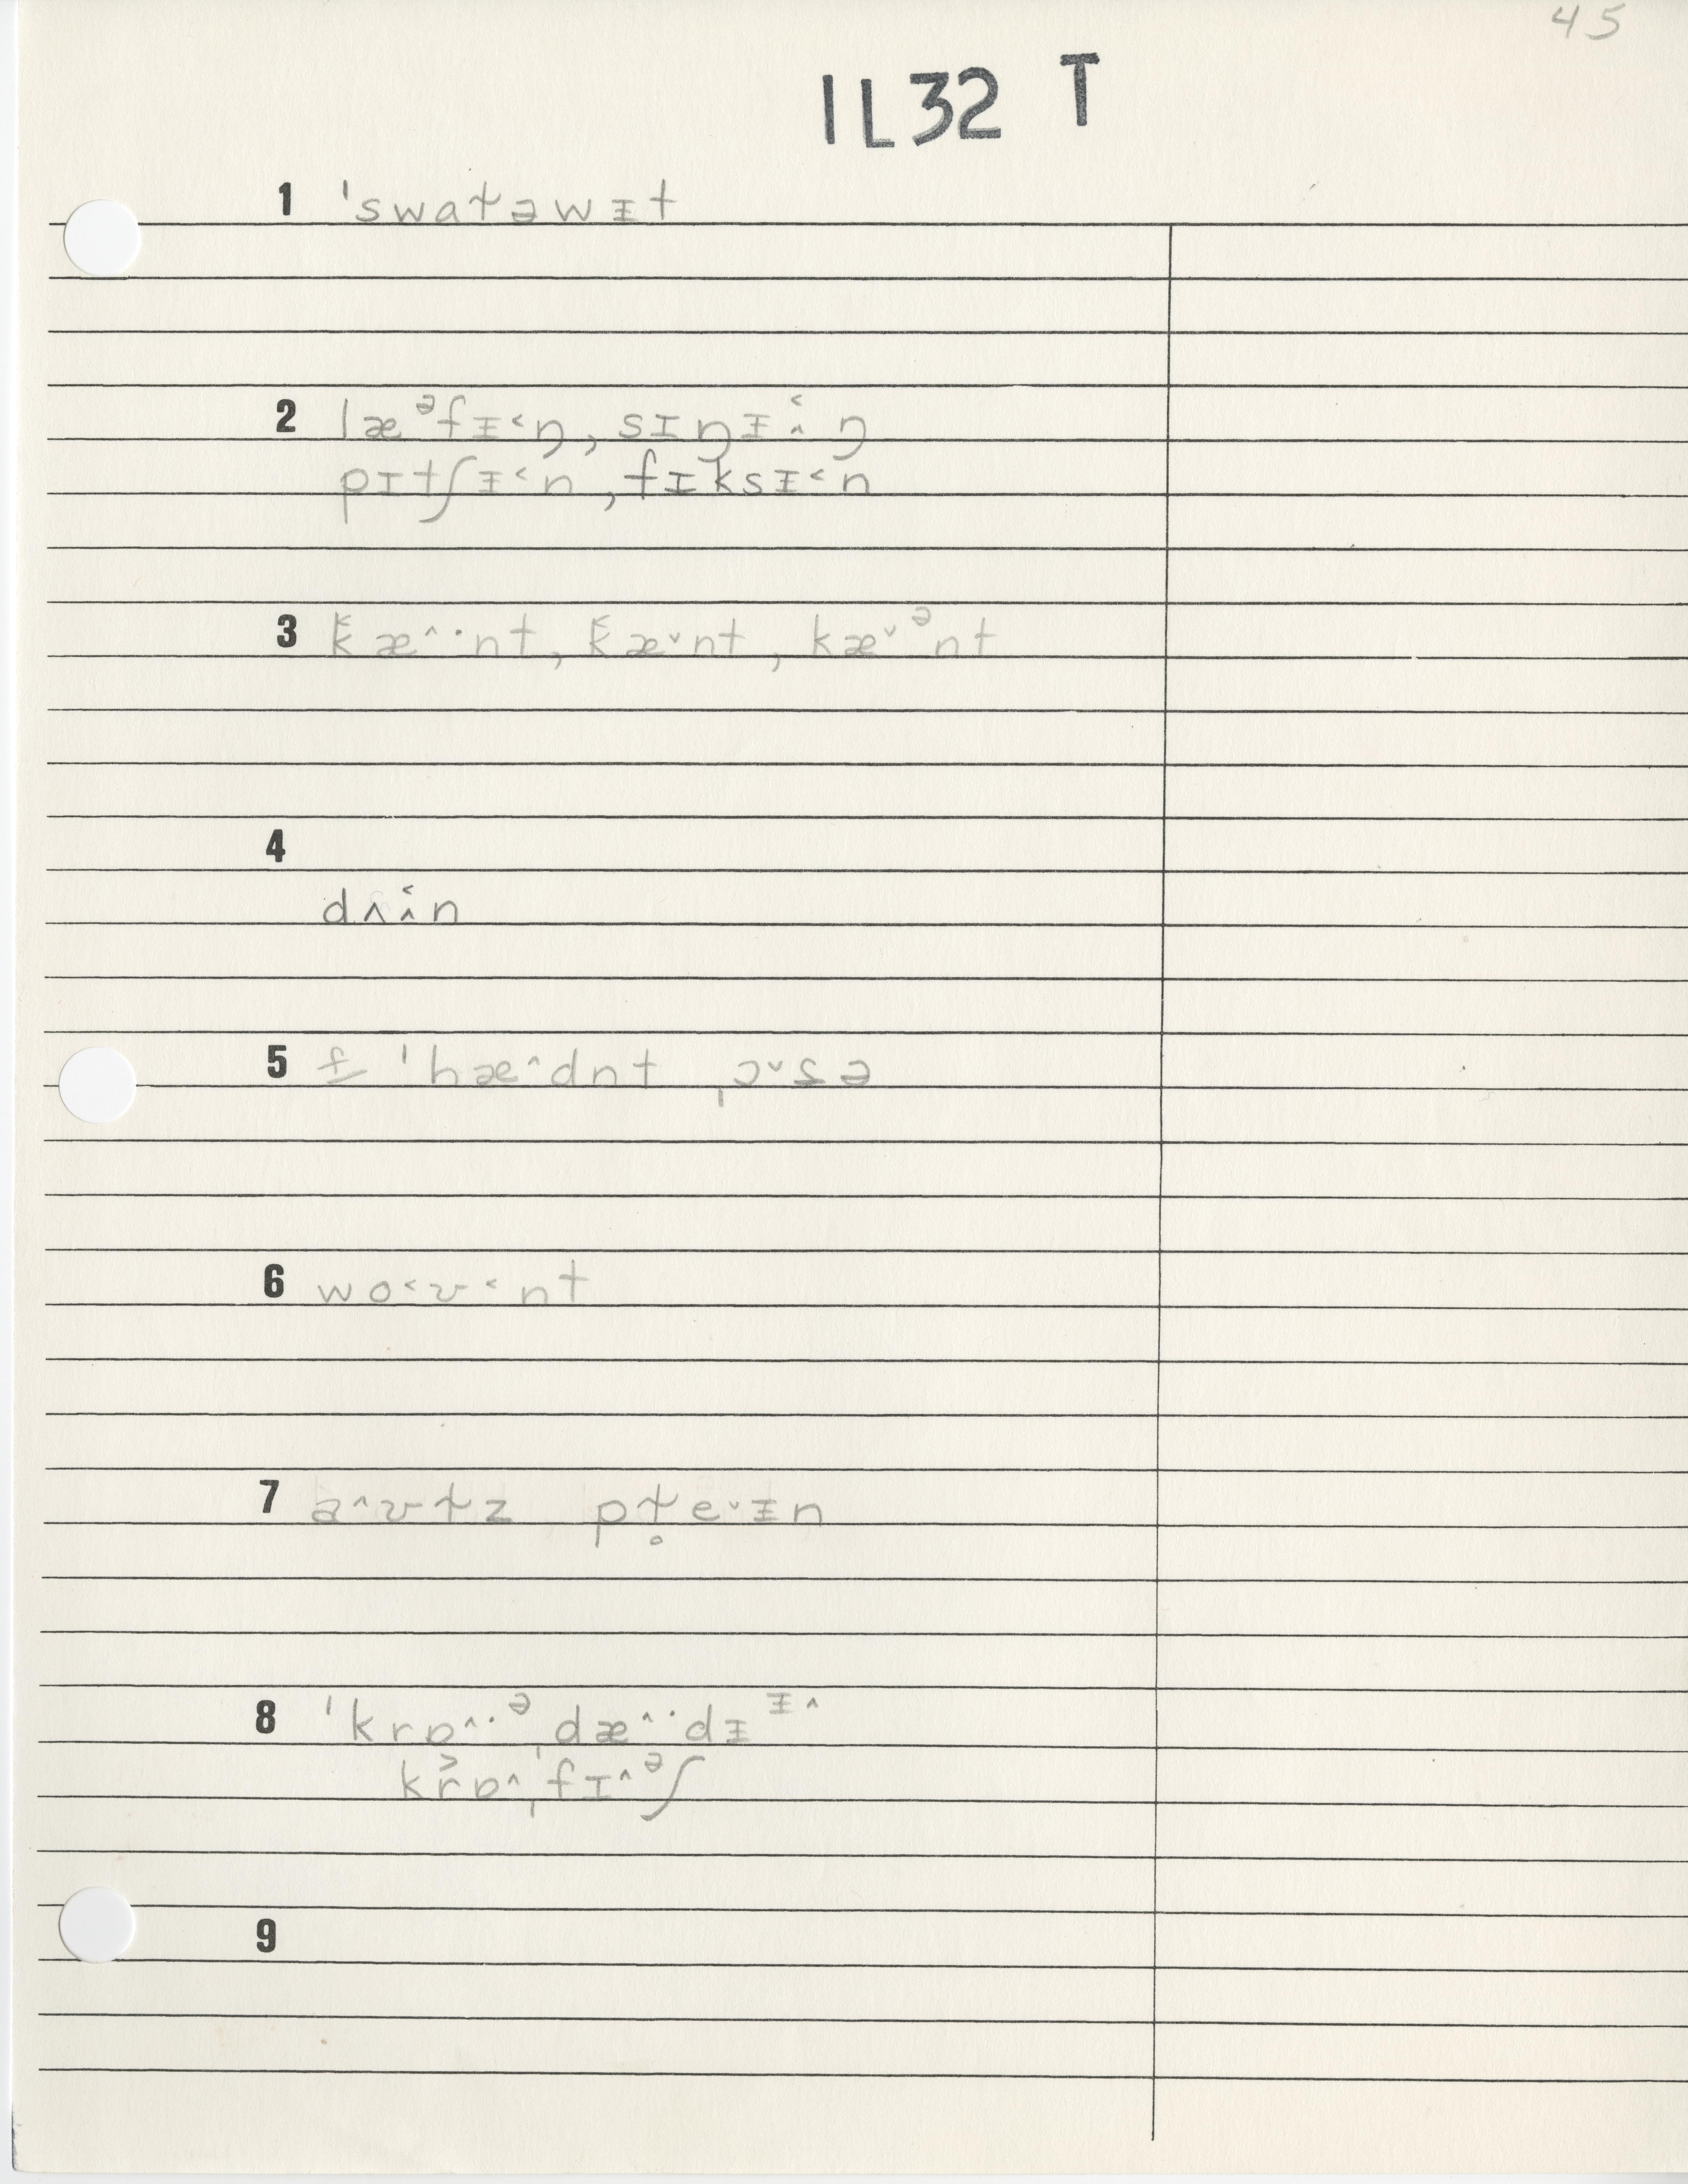 45
IL32 T
1 ˈswaɫəwᵻt
2 læᵊfᵻ˂ŋ, sɪŋɪ̂˄ŋ
pɪtʃᵻ˂n, fᵻksᵻ˂n
3 k̆æ˄·nt, k̆æ˅nt, kæ˅ᵊnt
4
dʌi̭n
5 ˈhæ˄dnt ˌɔ˅ sə
6 wo˂ʊ˂nt
7 a˄ʊɫz pɫ̥e˅ᵻn
8 ˈkrɒ˄·ᵊˌdæ˄·dᵻᵻ˄
krɒ˄ˌfɪ˄ᵊʃ
9